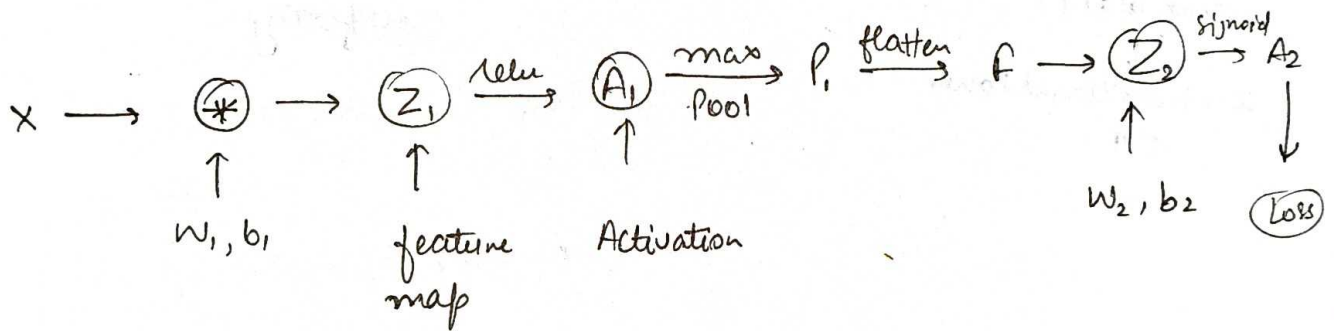 X → ⊛ → Z₁ relu → A₁ max Pool → P₁ flatten → F → Z₂ sigmoid → A₂
W₁, b₁
feature map
Activation
W₂, b₂
Loss